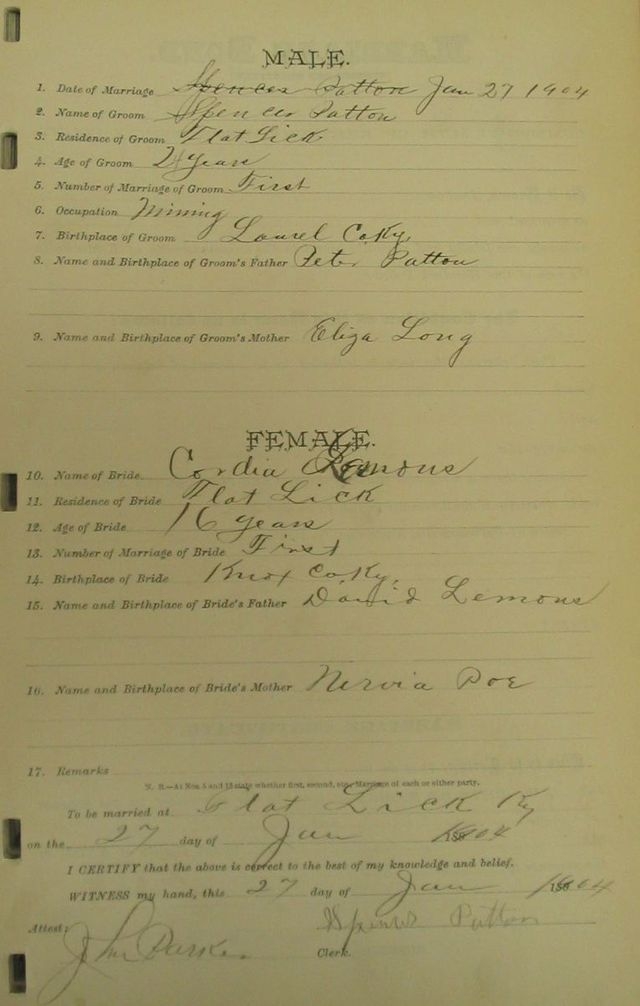 MALE.
1. Date of Marriage Spencer Patton Jan 27 1904
2. Name of Groom Spencer Patton
3. Residence of Groom Flat Lick
4. Age of Groom years
5. Number of Marriage of Groom First
6. Occupation Mining
7. Birthplace of Groom Laurel Co Ky,
8. Name and Birthplace of Groom's Father Peter Patton
9. Name and Birthplace of Groom's Mother Eliza Long
FEMALE.
10. Name of Bride Cordia Lemons
11. Residence of Bride Flat Lick
12. Age of Bride 16 years
13. Number of Marriage of Bride First
14. Birthplace of Bride Knox Co Ky,
15. Name and Birthplace of Bride's Father David Lemons
16. Name and Birthplace of Bride's Mother Nervia Poe
17. Remarks
N. B.—At Nos. 5 and 13 state whether first, second, etc., Marriage of each or either party.
To be married at Flat Lick Ky
on the 27 day of Jan 1904
I CERTIFY that the above is correct to the best of my knowledge and belief.
WITNESS my hand, this 27 day of Jan 1904
Spencer Patton
Attest:
Jno Parker Clerk.